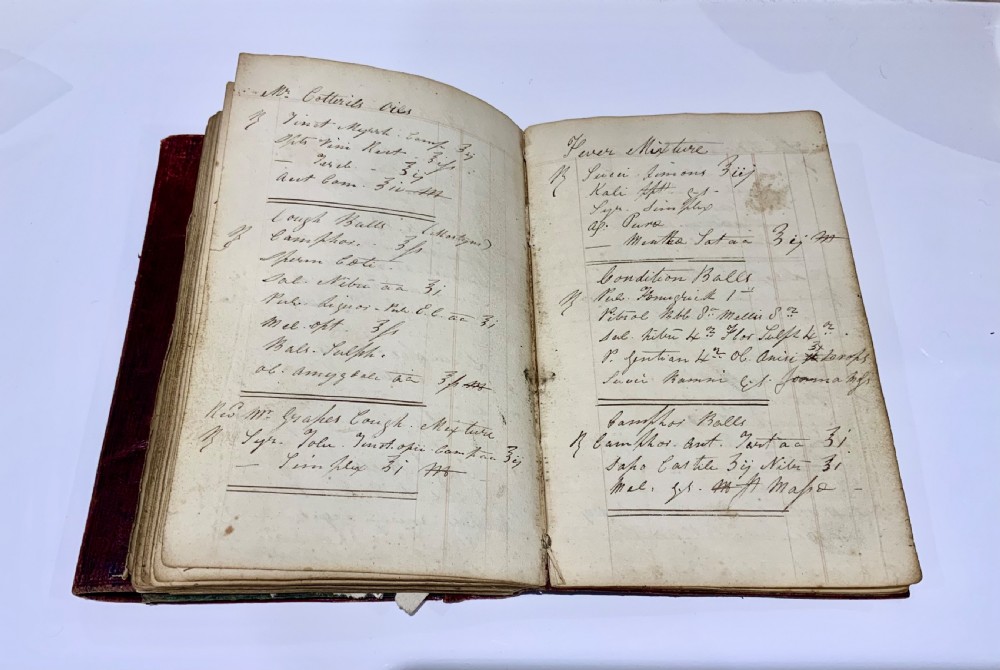 Mr. Cotterils Oils
℞ Tinct Myrrh. Comp ʒij
Spts Vini Rect ʒiſs
— Tereb - ʒij
ʒii m
Cough Balls (Martyns)
℞ Camphor. - ʒſs
Sperm Cœti -
Sal Nitri aa ʒi
Pulv. Liquor - Pulv E.C. aa ʒi
Mel. opt ʒſs
Bals. Sulph.
Ol. Amygdale aa ʒſs m
Mr. Grapes Cough. Mixture
℞ Syr. Tolu Tinct. opii Camp aa ʒij
— Simplex ʒi m
Fever Mixture
℞ Succi Limons ʒiij
Kali ppt qs
Syr. Simplex
Aq. Puræ
— Mentha Sat aa ʒij m
Condition Balls
℞ Pul. Fenugrick 1
Petrol Barb 8 oz Mellis 8 oz
Sal. nitri 4 oz Flor Sulph 4 oz
P. Gentian 4 oz Ol. Anisi
Succi q.s.
Camphor Balls
℞ Camphor. Ant. Tart aa ʒi
Sapo Castile ʒij Nitri ʒi
Mel. q.s. m ft Maſsæ -